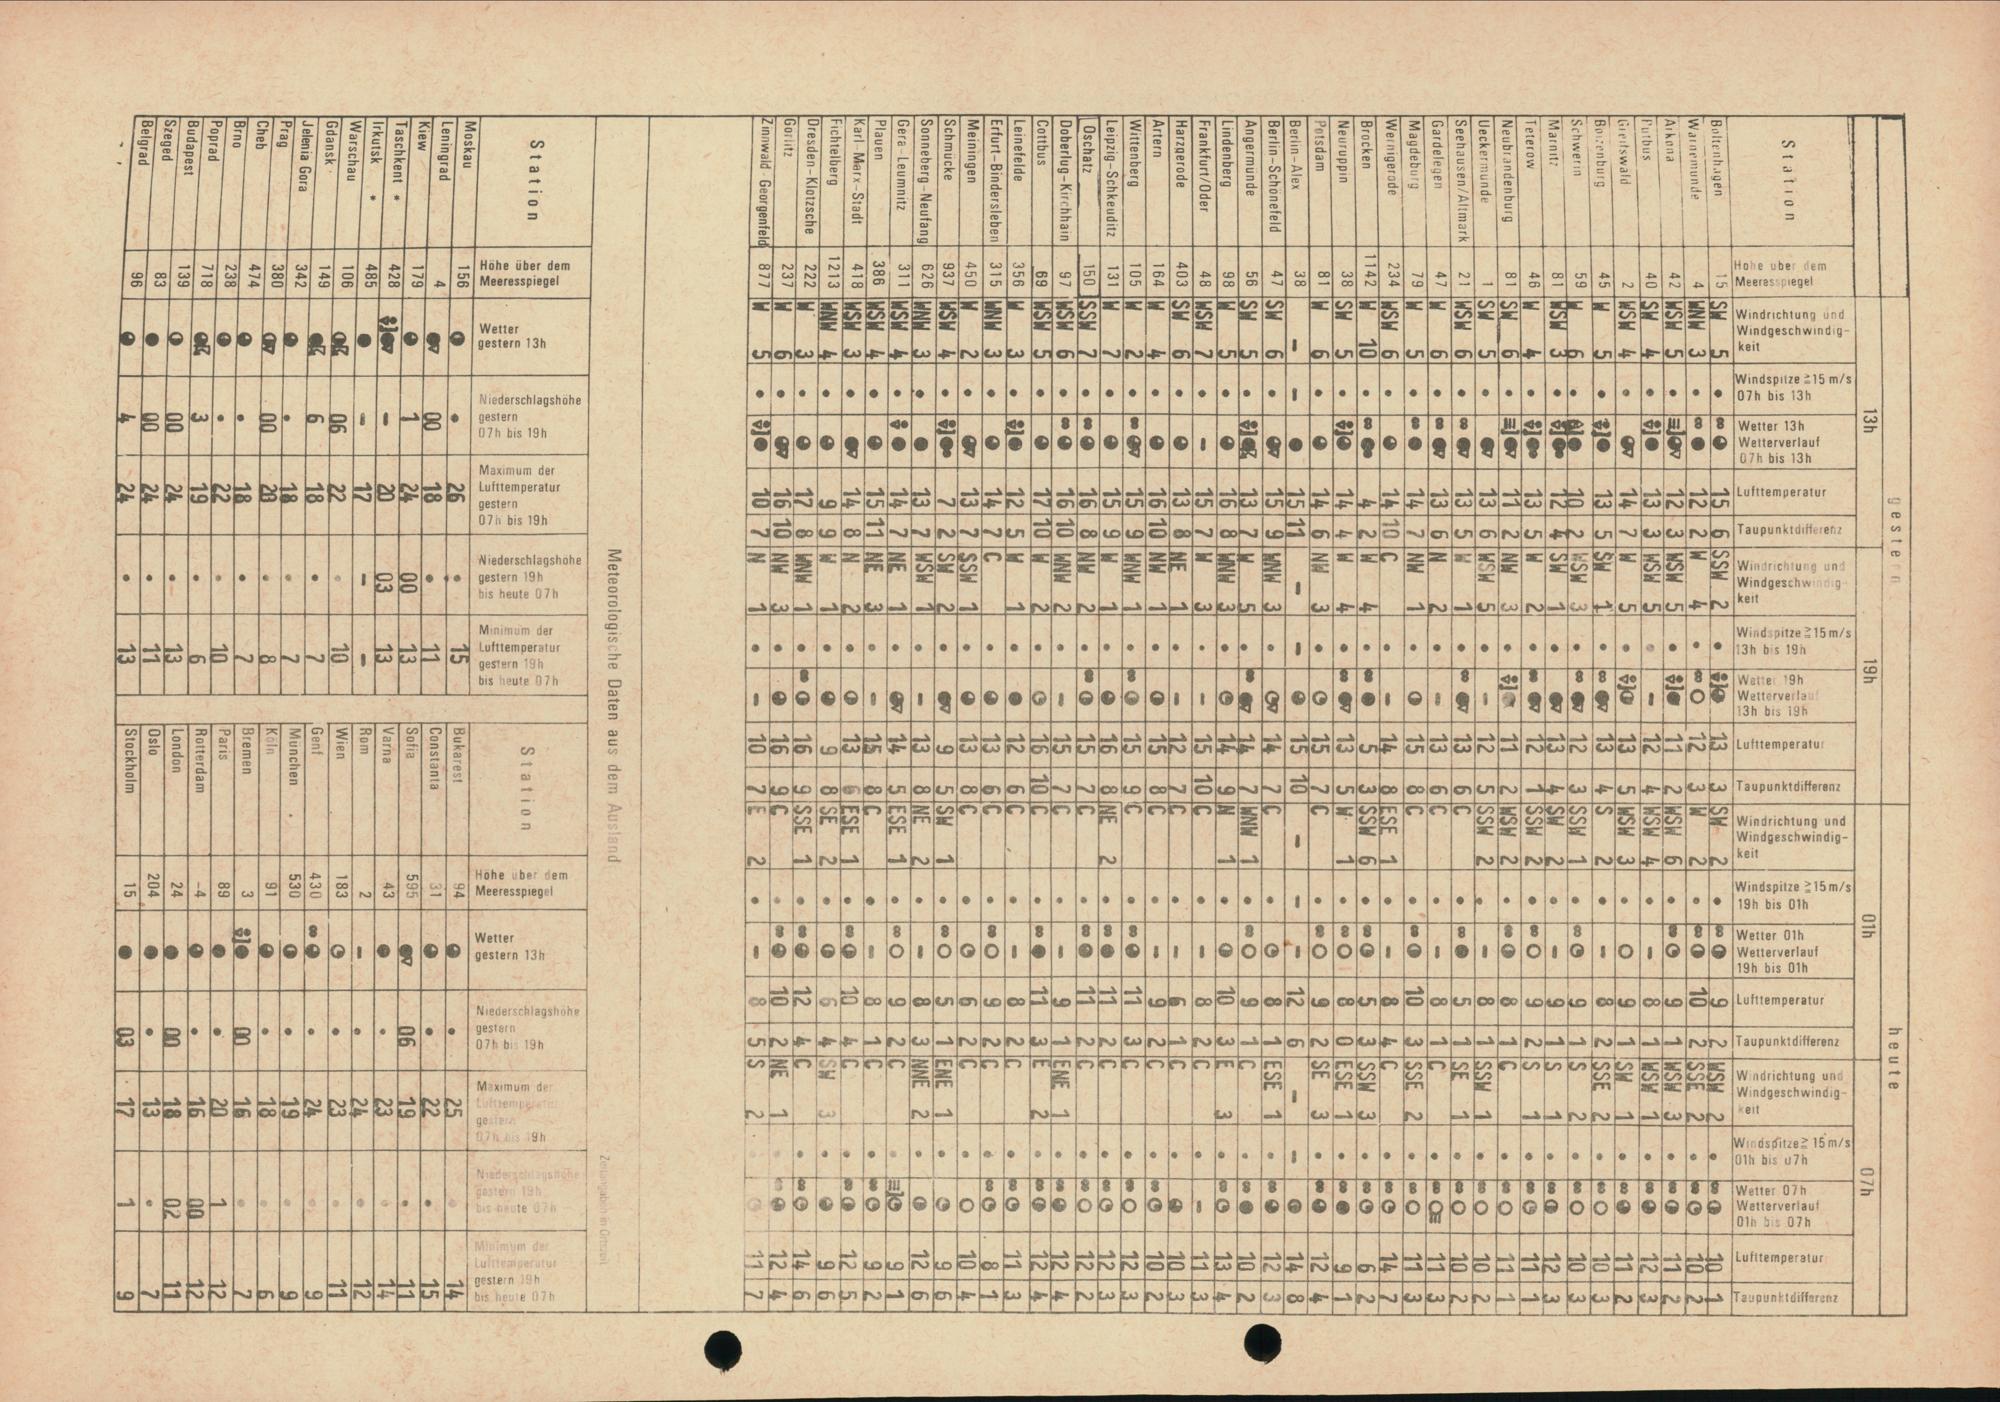 gestern heute
13h 19h 01h 07h
Station
Höhe über dem Meeresspiegel
Windrichtung und Windgeschwindigkeit
Windspitze ≥15 m/s 07h bis 13h
Wetter 13h Wetterverlauf 07h bis 13h
Lufttemperatur
Taupunktdifferenz
Windrichtung und Windgeschwindigkeit
Windspitze ≥15 m/s 13h bis 19h
Wetter 19h Wetterverlauf 13h bis 19h
Lufttemperatur
Taupunktdifferenz
Windrichtung und Windgeschwindigkeit
Windspitze ≥15 m/s 19h bis 01h
Wetter 01h Wetterverlauf 19h bis 01h
Lufttemperatur
Taupunktdifferenz
Windrichtung und Windgeschwindigkeit
Windspitze ≥15 m/s 01h bis 07h
Wetter 07h Wetterverlauf 01h bis 07h
Lufttemperatur
Taupunktdifferenz
Boltenhagen 15 SW 5 • 15 6 SSW 2 • 13 3 SW 2 • 9 2 WSW 2 • 10 1
Warnemünde 4 WNW 3 • 12 2 W 4 • 12 3 W 2 • 10 2 SSE 2 • 10 2
Arkona 42 WSW 5 • 12 3 WSW 5 • 11 2 WSW 6 • 9 1 WSW 3 • 11 2
Putbus 40 SW 4 • 13 3 WSW 5 • 12 4 WSW 4 • 8 1 WSW 1 • 12 3
Greifswald 2 WSW 4 • 14 7 W 5 • 13 5 WSW 3 • 9 1 SW 1 • 11 2
Boizenburg 45 SW 5 • 13 5 SW 1 • 13 4 S 2 • 8 2 SSE 2 • 10 3
Schwerin 59 W 6 • 10 2 WSW 3 • 12 3 SSW 1 • 9 1 S 2 • 10 3
Marnitz 81 WSW 3 • 12 4 SW 1 • 13 4 SW 2 • 9 1 S 1 • 12 3
Teterow 46 W 4 • 13 5 W 2 • 12 1 SSW 2 • 9 2 S 1 • 11 1
Neubrandenburg 81 SW 6 • 11 2 NW 3 • 11 2 WSW 2 • 8 1 C • 11 1
Ueckermünde 1 SW 5 • 13 6 WSW 5 • 12 5 SSW 2 • 8 1 SSW 1 • 10 2
Seehausen/Altmark 21 WSW 6 • 13 5 W 1 • 13 6 C • 5 1 SE 1 • 10 2
Gardelegen 47 W 6 • 13 6 N 2 • 13 6 C • 8 1 C • 11 3
Magdeburg 79 W 5 • 14 7 NW 1 • 15 8 C • 10 3 SSE 2 • 11 3
Wernigerode 234 WSW 6 • 14 10 C • 14 8 ESE 1 • 8 4 C • 14 7
Brocken 1142 W 10 • 4 2 W 4 • 5 3 SSW 6 • 5 3 SSW 3 • 6 2
Neuruppin 38 SW 5 • 14 4 W 4 • 13 5 W 1 • 8 0 ESE 1 • 9 1
Potsdam 81 W 6 • 14 6 NW 3 • 15 7 C • 9 2 SE 3 • 12 4
Berlin-Alex 38 – – 15 11 – – 15 10 – – – 12 6 – – 14 8
Berlin-Schönefeld 47 SW 6 • 15 9 WNW 3 • 14 7 C • 8 1 ESE 1 • 12 3
Angermünde 56 SW 5 • 13 7 W 5 • 14 7 WNW 1 • 9 1 C • 10 2
Lindenberg 98 W 5 • 16 8 WNW 3 • 14 9 N 1 • 10 3 E 3 • 13 4
Frankfurt/Oder 48 WSW 7 • – 15 7 W 3 • – 15 10 C • – 8 2 C • – 11 3
Harzgerode 403 SW 6 • 13 8 NE 1 • – 12 7 C • – 6 1 C • 10 3
Artern 164 W 4 • 16 10 NW 1 • 15 8 C • – 9 2 C • 10 2
Wittenberg 105 W 2 • 15 9 WNW 1 • 15 9 C • 11 3 C • 12 3
Leipzig-Schkeuditz 131 W 7 • 15 9 W 1 • 16 8 NE 2 • 11 2 C • 12 3
Oschatz 150 SSW 7 • 16 8 NW 2 • 15 7 C • 11 2 C • 12 2
Doberlug-Kirchhain 97 WSW 6 • 16 10 WNW 2 • – 15 7 C • – 9 1 ENE 1 • 12 4
Cottbus 69 WSW 5 • 17 10 W 2 • 16 10 C • 11 3 E 2 • 12 4
Leinefelde 356 W 3 • 12 5 W 1 • 12 6 C • – 8 2 C • 11 3
Erfurt-Bindersleben 315 WNW 3 • 14 7 C • 13 6 C • 9 2 C • 8 1
Meiningen 450 W 2 • 13 7 SSW 1 • 13 8 C • 6 2 C • 10 4
Schmücke 937 WSW 4 • 7 2 SW 2 • 9 5 SW 1 • 5 1 ENE 1 • 9 6
Sonneberg-Neufang 626 WNW 3 • 13 7 WSW 1 • – 13 8 NE 2 • – 8 3 NNE 2 • 12 6
Gera-Leumnitz 311 WSW 4 • 14 7 NE 1 • 14 5 ESE 1 • 9 2 C • 9 1
Plauen 386 WSW 4 • 15 11 NE 3 • – 15 8 C • – 8 1 C • 9 2
Karl-Marx-Stadt 418 WSW 3 • 14 8 N 2 • 13 6 ESE 1 • 10 4 C • 12 5
Fichtelberg 1213 WNW 4 • 9 9 W 1 • 9 8 SE 2 • 6 4 SW 3 • 9 6
Dresden-Klotzsche 222 W 3 • 17 8 WNW 1 • 16 9 SSE 1 • 12 4 C • 14 6
Görlitz 237 W 6 • 16 10 NW 3 • 16 9 C • 10 2 NE 1 • 12 4
Zinnwald-Georgenfeld 877 W 5 • 10 7 N 1 • – 10 7 E 2 • – 8 5 S 2 • 11 7
Meteorologische Daten aus dem Ausland
Zeitangaben in Ortszeit
Station
Höhe über dem Meeresspiegel
Wetter gestern 13h
Niederschlagshöhe gestern 07h bis 19h
Maximum der Lufttemperatur gestern 07h bis 19h
Niederschlagshöhe gestern 19h bis heute 07h
Minimum der Lufttemperatur gestern 19h bis heute 07h
Moskau 156 • 26 • 15
Leningrad 4 00 18 • 11
Kiew 179 1 24 00 13
Taschkent * 428 – 20 03 13
Irkutsk * 485 – 17 – –
Warschau 106 06 22 • 10
Gdansk 149 6 18 • 7
Jelenia Gora 342 • 18 • 7
Prag 380 00 20 • 8
Cheb 474 • 18 • 7
Brno 238 • 22 • 10
Poprad 718 3 19 • 6
Budapest 139 00 24 • 13
Szeged 83 00 24 • 11
Belgrad 96 4 24 • 13
Station
Höhe über dem Meeresspiegel
Wetter gestern 13h
Niederschlagshöhe gestern 07h bis 19h
Maximum der Lufttemperatur gestern 07h bis 19h
Niederschlagshöhe gestern 19h bis heute 07h
Minimum der Lufttemperatur gestern 19h bis heute 07h
Bukarest 94 • 25 • 14
Constanta 31 • 22 • 15
Sofia 595 06 19 • 11
Varna 43 • 23 • 14
Rom 2 – • 24 • 12
Wien 183 • 23 • 11
Genf 430 • 24 • 9
München 530 • 19 • 9
Köln 91 • 18 • 6
Bremen 3 00 16 • 7
Paris 89 • 20 1 12
Rotterdam -4 • 16 00 12
London 24 00 18 02 11
Oslo 204 • 13 • 7
Stockholm 15 03 17 1 9